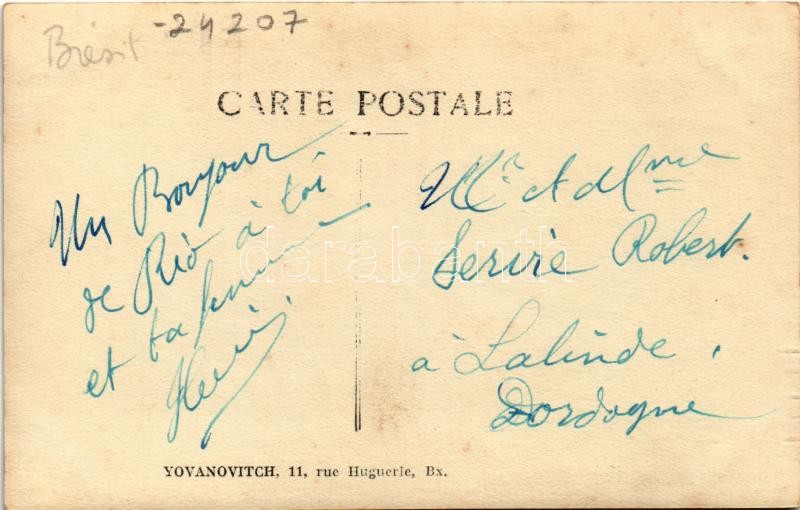 Brésil
-24207
CARTE POSTALE
Un Bonjour
de Rio à toi
et ta femme
Henri.
Mr et Mme
Serire Robert.
à Lalinde,
Dordogne
darabanth
YOVANOVITCH, 11, rue Huguerie, Bx.